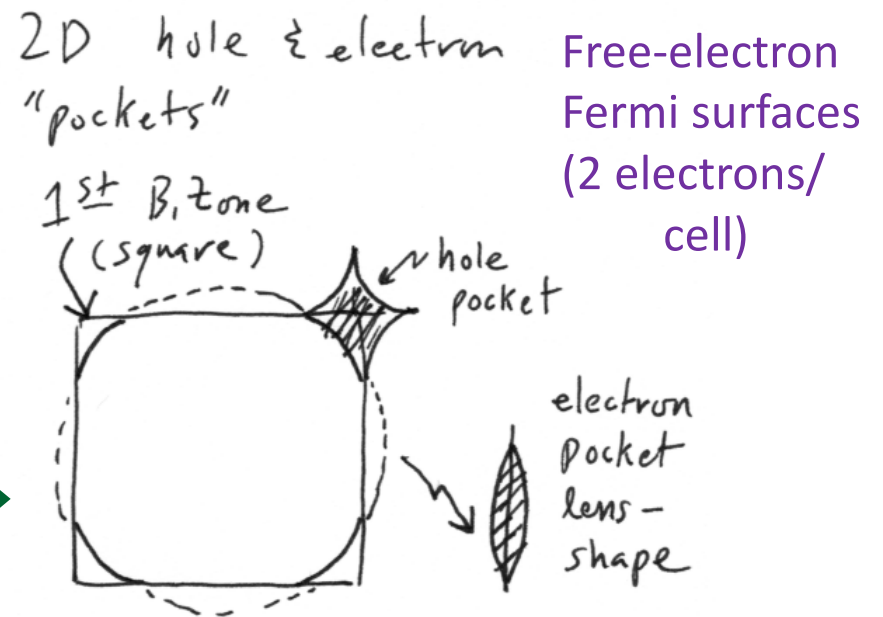 2D hole & electron
"pockets"
Free-electron
Fermi surfaces
(2 electrons/
cell)
1st B. zone
(square)
hole
pocket
electron
pocket
lens-
shape